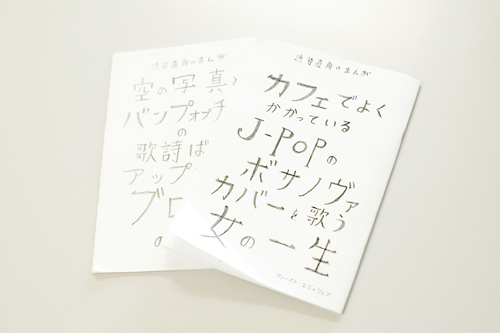 渋谷直角のまんが
空の写真
バンプオブチ
の
歌詩ば
アップ
ブロ
の
渋谷直角のまんが
カフェでよく
かかっている
J-POPの
ボサノヴァ
カバーを歌う
女の一生